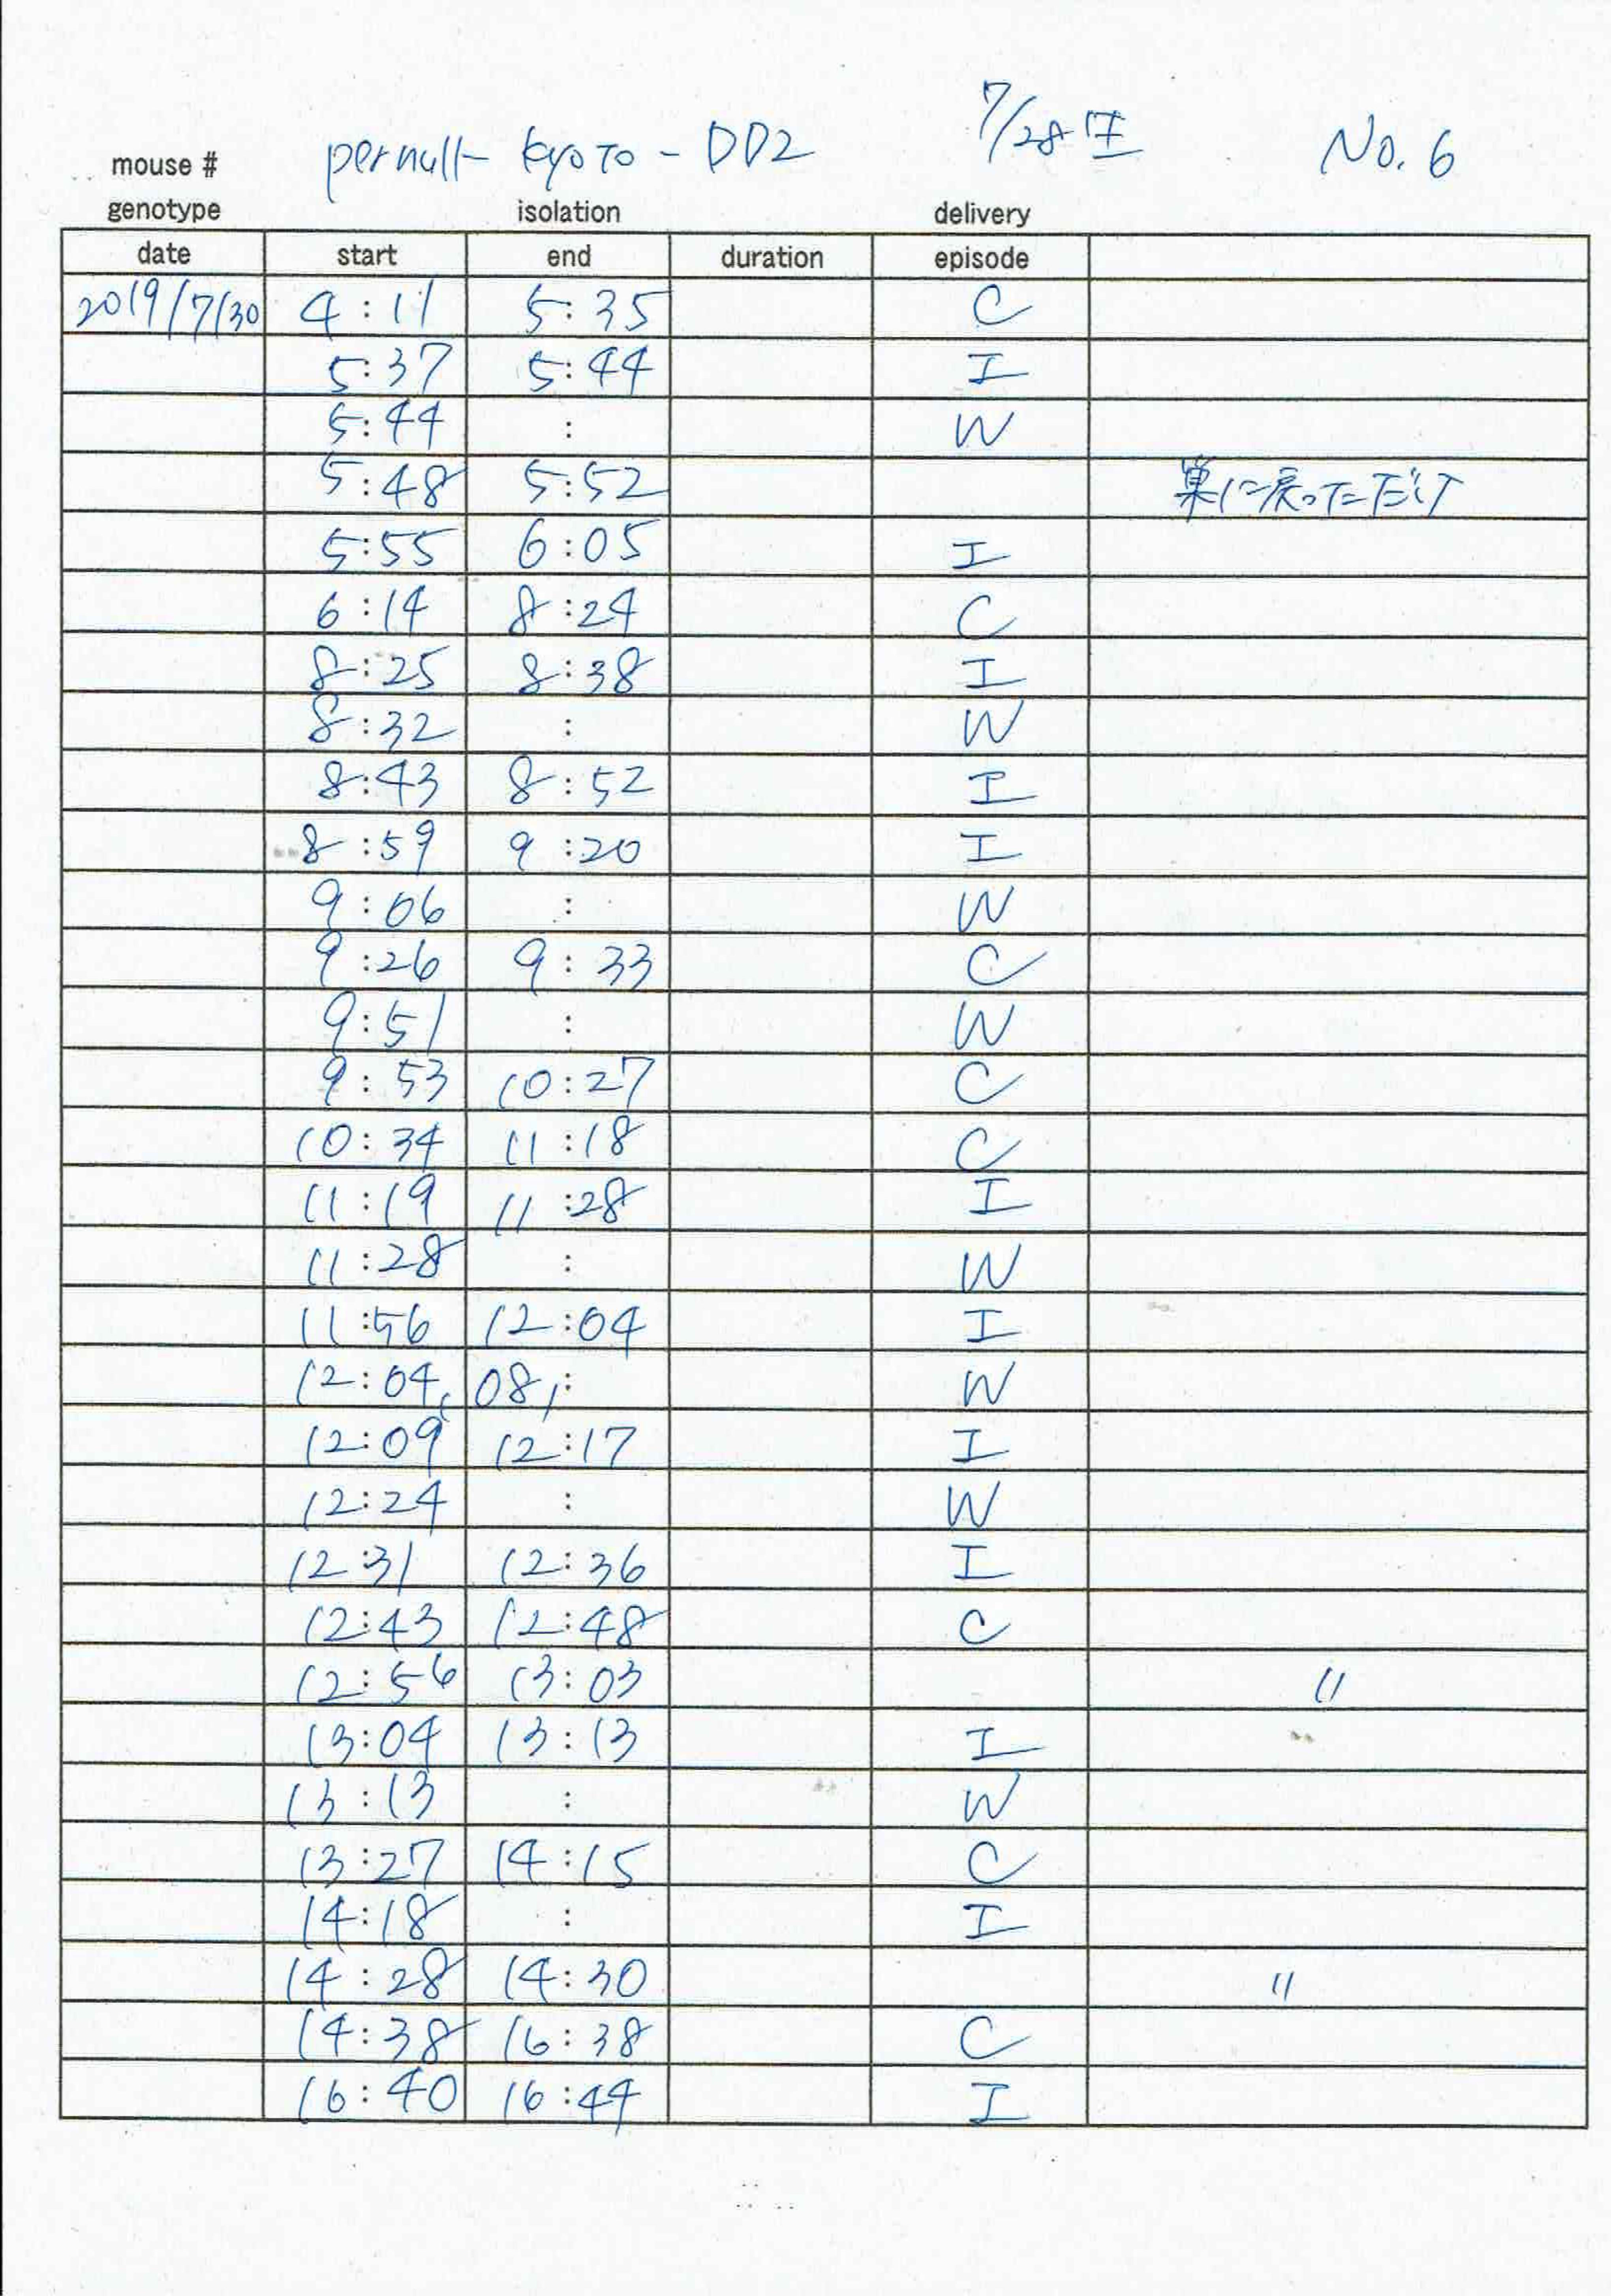 7/28 No. 6
mouse # pernull- kyoto - DD2
genotype isolation delivery
date start end duration episode
2019/7/30 4:11 5:35 C
5:37 5:44 I
5:44 : W
5:48 5:52 巣に戻っただけ
5:55 6:05 I
6:14 8:24 C
8:25 8:38 I
8:32 : W
8:43 8:52 I
8:59 9:20 I
9:06 : W
9:26 9:33 C
9:51 : W
9:53 10:27 C
10:34 11:18 C
11:19 11:28 I
11:28 : W
11:56 12:04 I
12:04, 08, : W
12:09 12:17 I
12:24 : W
12:31 12:36 I
12:43 12:48 C
12:56 13:03 〃
13:04 13:13 I
13:13 : W
13:27 14:15 C
14:18 : I
14:28 14:30 〃
14:38 16:38 C
16:40 16:44 I